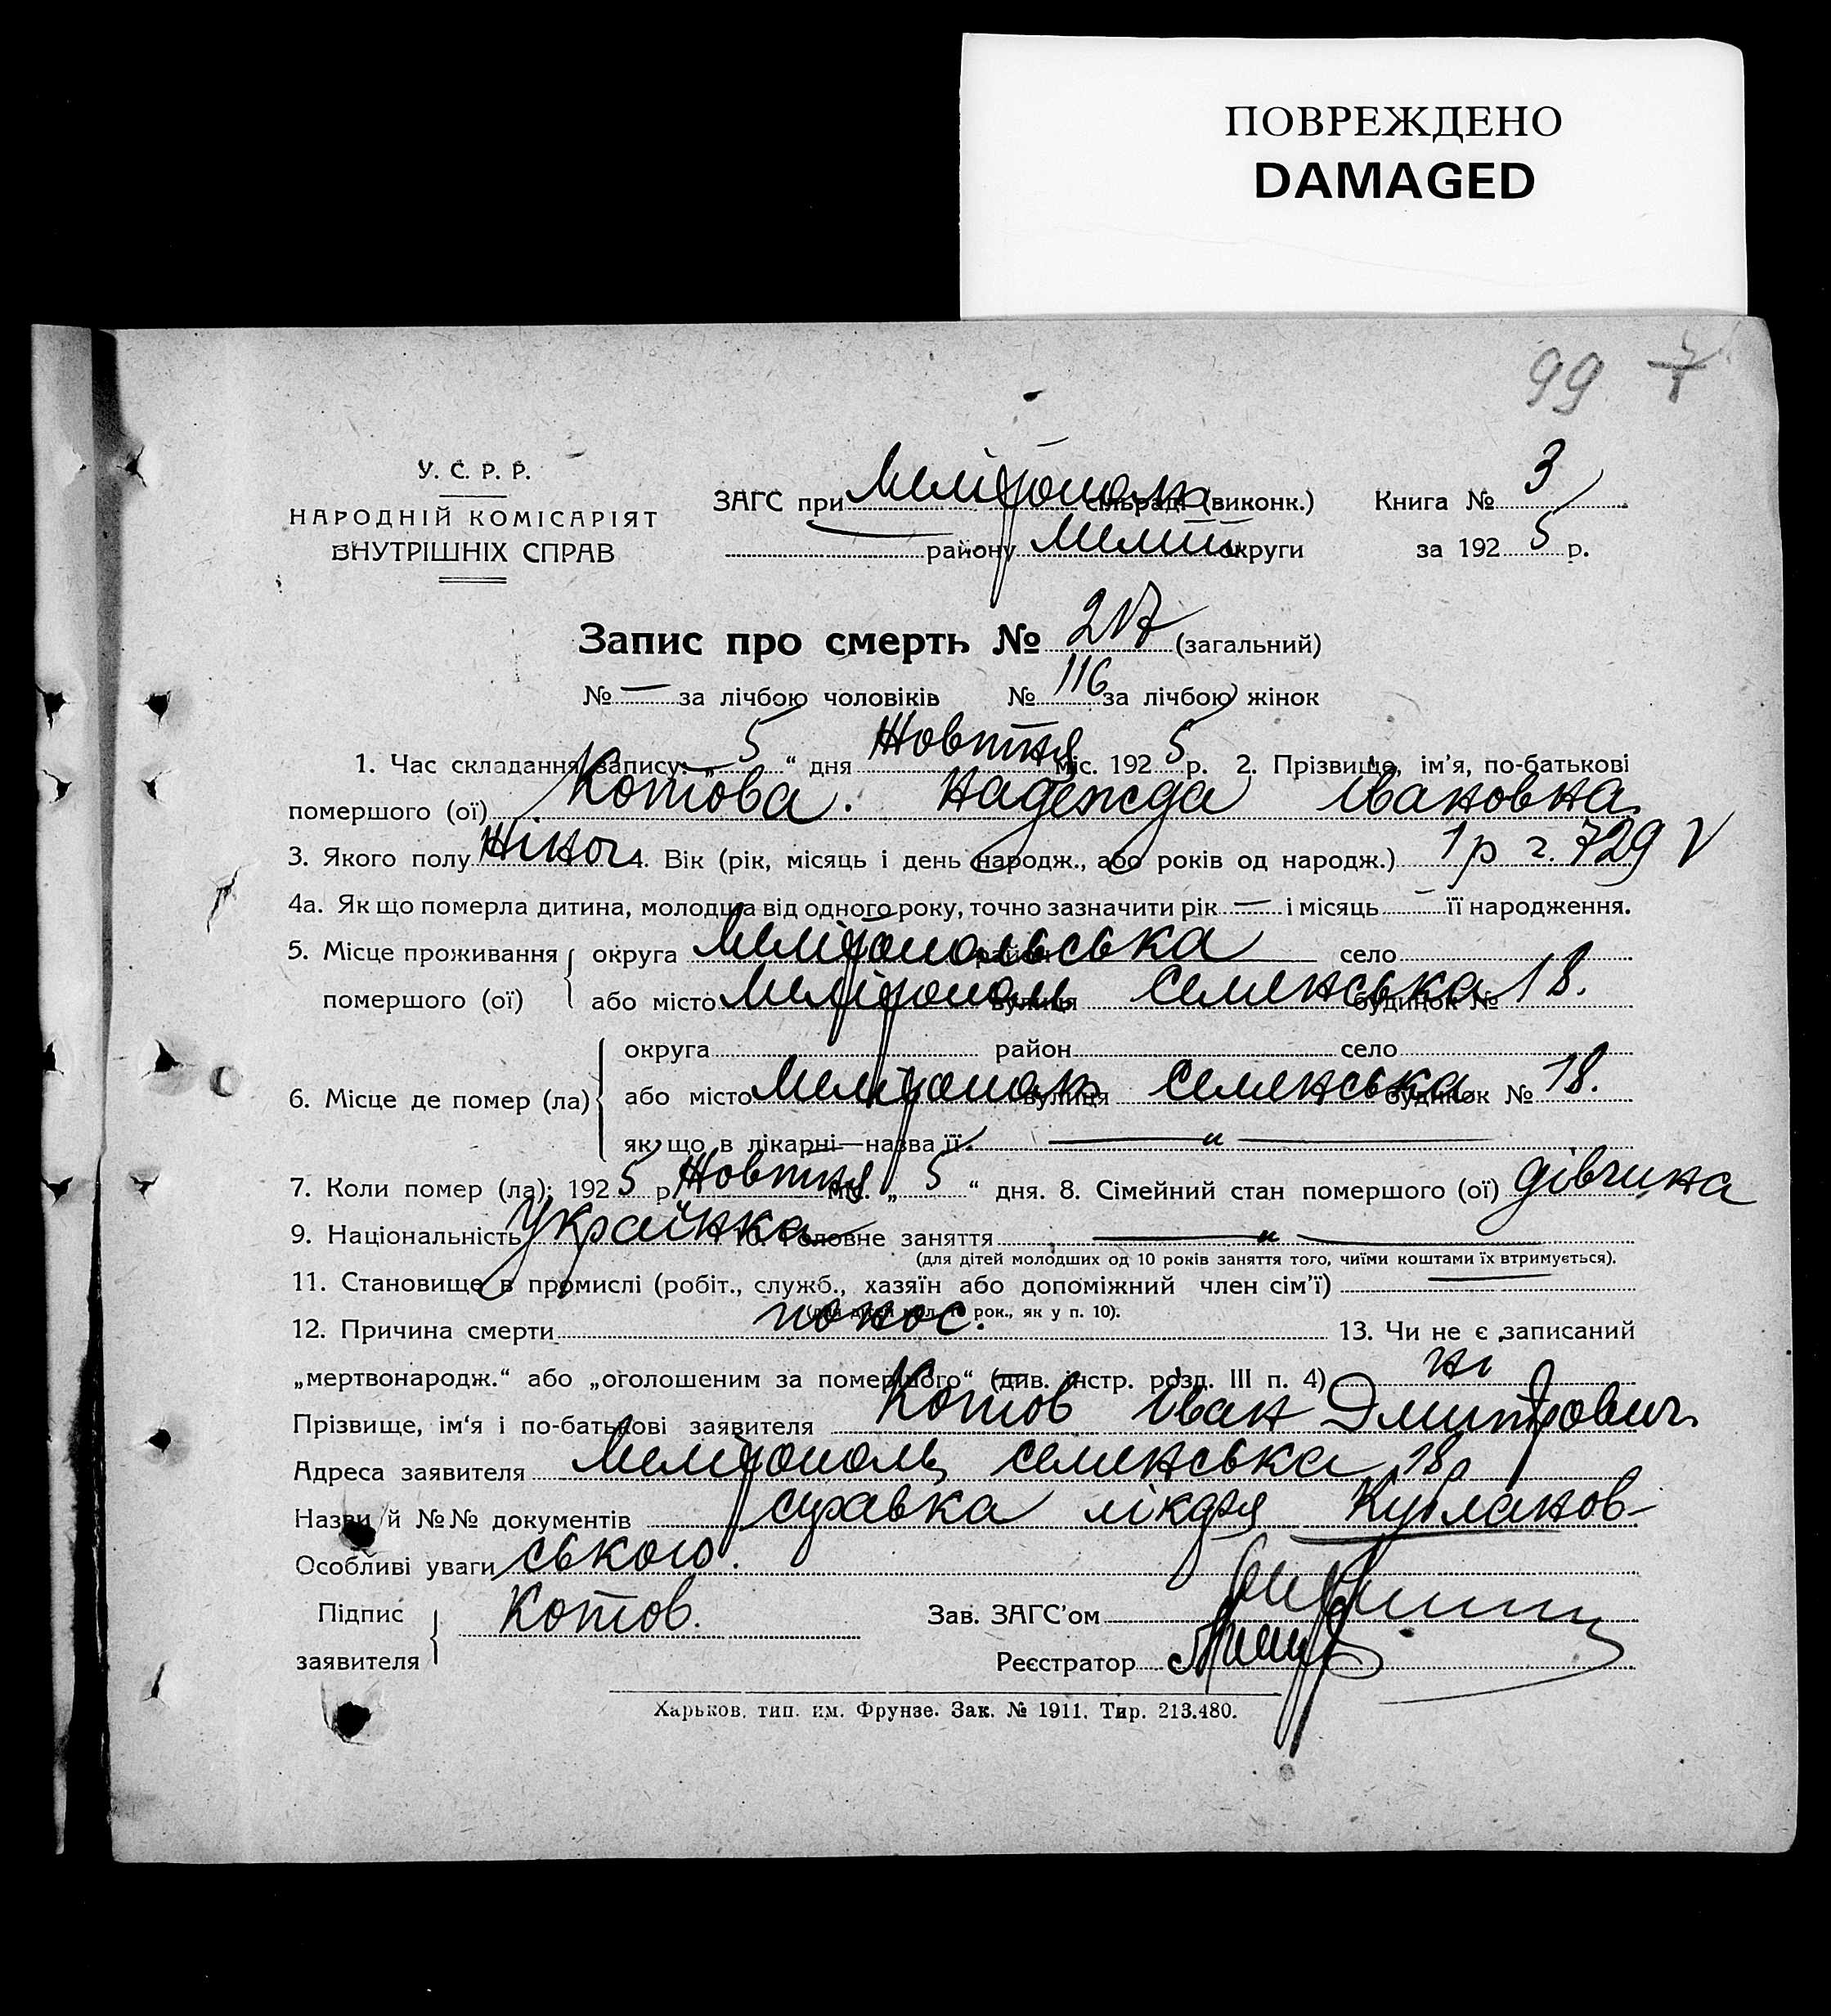 ПОВРЕЖДЕНО
DAMAGED
99 7
У. С. Р. Р.
НАРОДНІЙ КОМІСАРІЯТ
ВНУТРІШНІХ СПРАВ
ЗАГС при Мелітополь сільраді (виконк.) Книга № 3
району Меліт округи за 192 5 р.
Запис про смерть № 217 (загальний)
№ — за лічбою чоловіків № 116 за лічбою жінок
1. Час складання запису: „ 5 “ дня Жовтня міс. 192 5 р. 2. Прізвище, ім’я, по-батькові
помершого (ої) Котова. Надежда Івановна
3. Якого полу Жіноч 4. Вік (рік, місяць і день народж., або років од народж.) 1 р
4а. Як що померла дитина, молодша від одного року, точно зазначити рік — і місяць — її народження.
5. Місце проживання округа Мелітопольська район село
помершого (ої) або місто Мелітополь вулиця Семенська будинок № 18.
округа район село
6. Місце де помер (ла) або місто Мелітополь вулиця Семенська будинок № 18.
як що в лікарні—назва її — „ —
7. Коли помер (ла): 192 5 р. Жовтня міс. „ 5 “ дня. 8. Сімейний стан помершого (ої) дівчина
9. Національність Українка 10. Головне заняття — „ —
(для дітей молодших од 10 років заняття того, чиїми коштами їх втримується).
11. Становище в промислі (робіт., служб., хазяїн або допоміжний член сім’ї) —
(для дітей мол. 10 рок., як у п. 10).
12. Причина смерти понос. 13. Чи не є записаний
„мертвонародж.“ або „оголошеним за помершого“ (див. інстр. розд. III п. 4) ні
Прізвище, ім’я і по-батькові заявителя Котов Іван Дмитрович
Адреса заявителя Мелітополь семенська 18
Назви й №№ документів справка лікаря Кубланов-
Особливі уваги ського.
Підпис Котов. Зав. ЗАГС’ом
заявителя Реєстратор
Харьков, тип. им. Фрунзе. Зак. № 1911. Тир. 213.480.